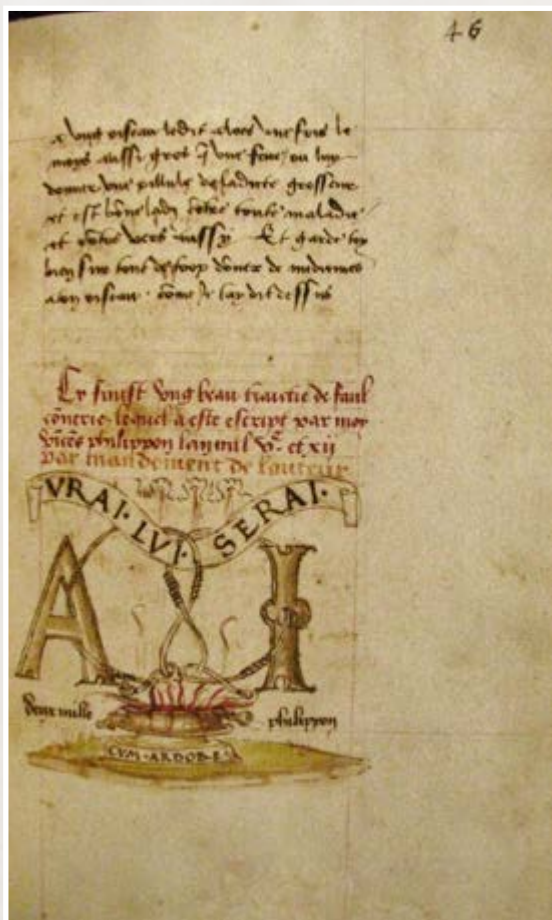 46
a ung oiseau ledit aloes une fois le
moys aussi gros q̃ une feve / ou luy
donner une pillule de ladicte grosseur
et est bõne lad̃ cõtre toute maladie
et cõtre vers aussy Et garde toy
bien sur tout de trop dõner de medicines
a ton oiseau · cõme Je tay dit dessus
Cy finist ung beau traictie de faul
cõnerie · lequel a este escript par moy
philippon lan mil Vc et xii
par mandement de lauteur
VRAI · LUI · SERAI ·
A I
deux mille philippon
CUM · ARDOR · E